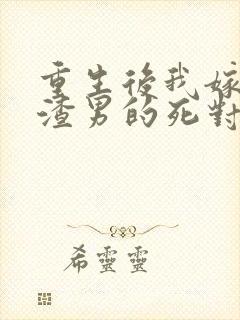 重生後我嫁
渣男的死對
希靈靈